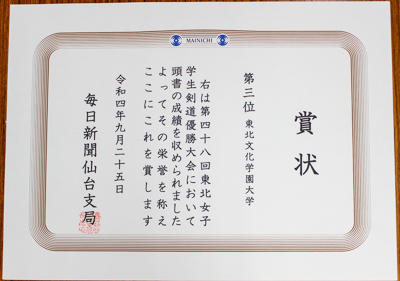 MAINICHI
賞状
第三位 東北文化学園大学
右は第四十八回東北女子
学生剣道優勝大会において
頭書の成績を収められました
よってその栄誉を称え
ここにこれを賞します
令和四年九月二十五日
毎日新聞仙台支局